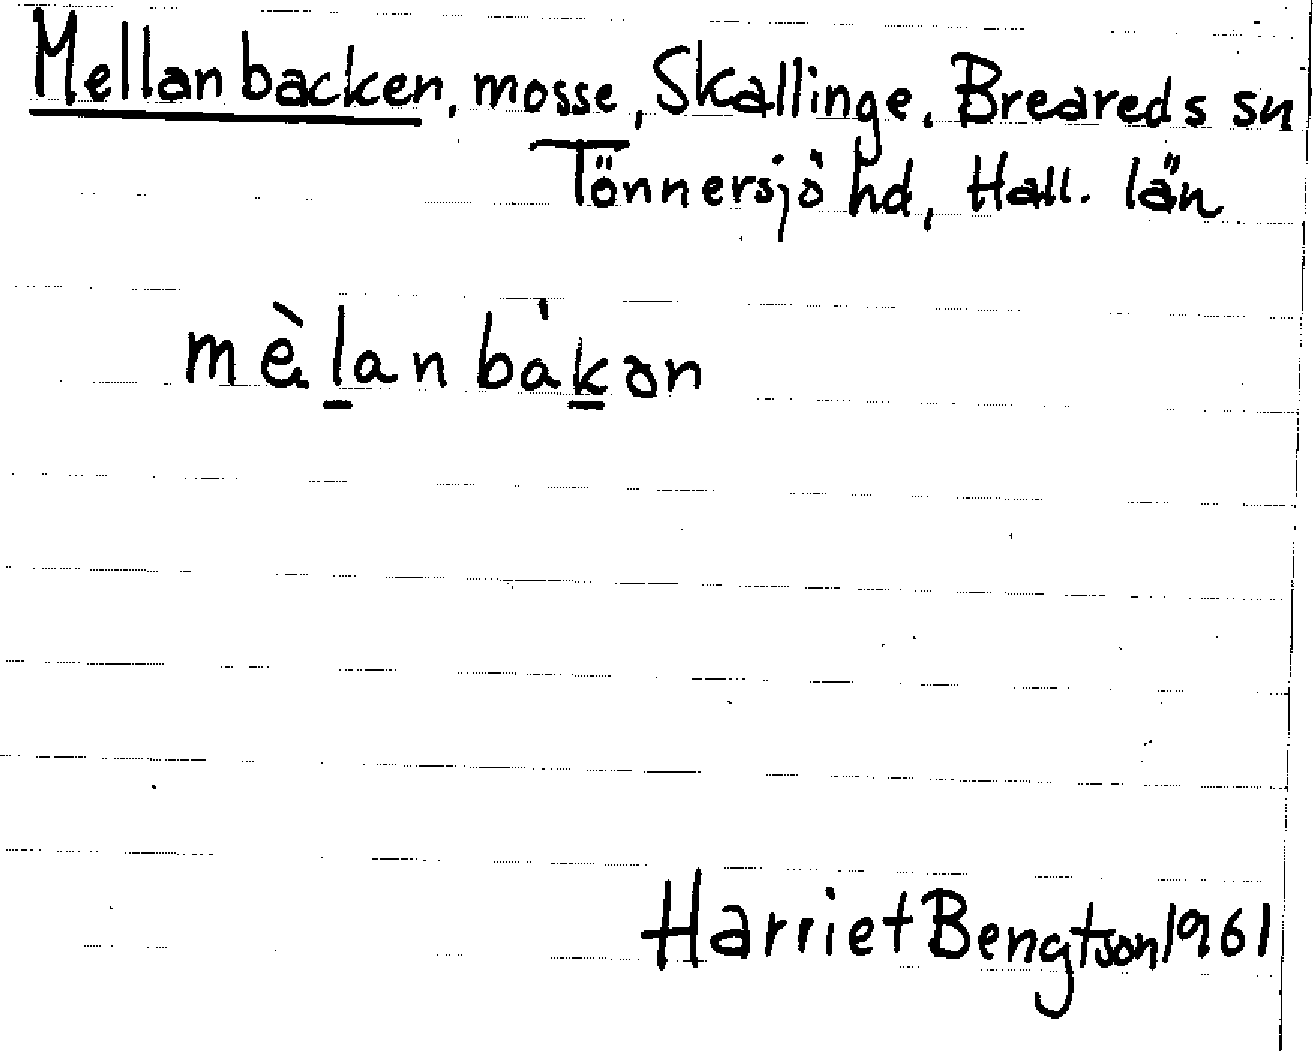 Mellanbacken, mosse, Skallinge, Breareds sn
Tönnersjö hd, Hall. län
mèḻanbàḵən
Harriet Bengtson 1961